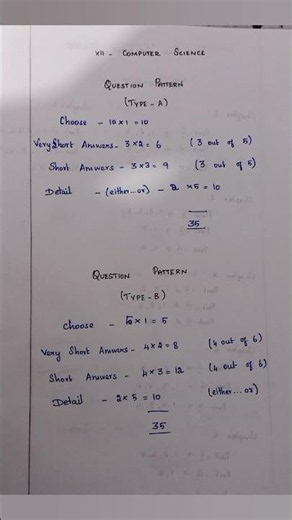 XII - COMPUTER SCIENCE
QUESTION PATTERN
(TYPE - A)
Choose - 10 × 1 = 10
Very Short Answers - 3 × 2 = 6 (3 out of 5)
Short Answers - 3 × 3 = 9 (3 out of 5)
Detail - (either...or) - 2 × 5 = 10
35
QUESTION PATTERN
(TYPE - B)
Choose - 5 × 1 = 5
Very Short Answers - 4 × 2 = 8 (4 out of 6)
Short Answers - 4 × 3 = 12 (4 out of 6)
Detail - 2 × 5 = 10 (either...or)
35